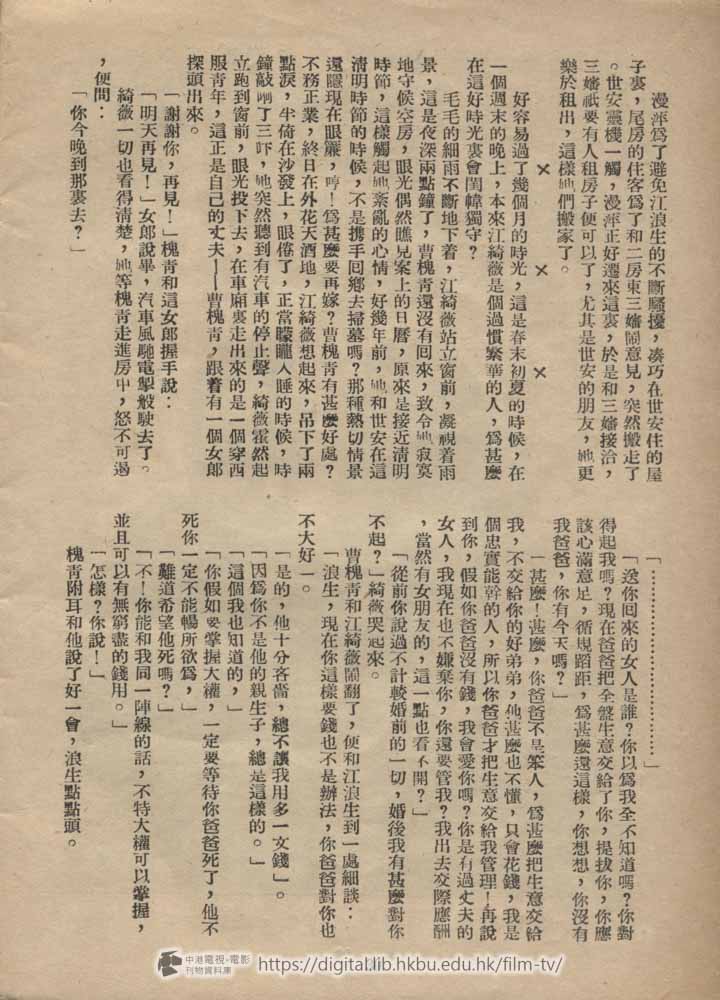 漫萍爲了避免江浪生的不斷騷擾，凑巧在世安住的屋
子裏，尾房的住客爲了和二房東三嬸鬧意見，突然搬走了
。世安靈機一觸，漫萍正好遷來這裏，於是和三嬸接洽，
三嬸祇要有人租房子便可以了，尤其是世安的朋友，她更
樂於租出，這樣她們搬家了。
×　×　×
好容易過了幾個月的時光，這是春末初夏的時候，在
一個週末的晚上，本來江綺薇是個過慣繁華的人，爲甚麽
在這好時光裏會閨幃獨守？
毛毛的細雨不斷地下着，江綺薇站立窗前，凝視着雨
景，這是夜深兩點鐘了，曹槐青還沒有回來，致令她寂寞
地守候空房，眼光偶然瞧見案上的日曆，原來是接近清明
時節，這樣觸起她紊亂的心情，好幾年前，她和世安在這
清明時節的時候，不是携手囘鄉去掃墓嗎？那種熱切情景
還隱現在眼簾，哼！爲甚麽要再嫁？曹槐青有甚麽好處？
不務正業，終日在外花天酒地，江綺薇想起來，吊下了兩
點淚，半倚在沙發上，眼倦了，正當朦朧入睡的時候，時
鐘敲响了三吓，她突然聽到有汽車的停止聲，綺薇霍然起
立跑到窗前，眼光投下去，在車廂裏走出來的是一個穿西
服青年，這正是自己的丈夫——曹槐青，跟着有一個女郎
探頭出來。
「謝謝你，再見！」槐青和這女郎握手說：
「明天再見！」女郎說畢，汽車風馳電掣般駛去了。
綺薇一切也看得清楚，她等槐青走進房中，怒不可遏
，便問：
「你今晚到那裏去？」
「……………………………」
「送你囘來的女人是誰？你以爲我全不知道嗎？你對
得起我嗎？現在爸爸把全盤生意交給了你，提拔你，你應
該心滿意足，循規蹈距，爲甚麽還這樣，你想想，你沒有
我爸爸，你有今天嗎？」
「甚麽！甚麽，你爸爸不是笨人，爲甚麽把生意交給
我，不交給你的好弟弟，他甚麽也不懂，只會花錢，我是
個忠實能幹的人，所以你爸爸才把生意交給我管理！再說
到你，假如你爸爸沒有錢，我會愛你嗎？你是有過丈夫的
女人，我現在也不嫌棄你，你還要管我？我出去交際應酬
，當然有女朋友的，這一點也看不開？」
「從前你說過不計較婚前的一切，婚後我有甚麽對你
不起？」綺薇哭起來。
曹槐青和江綺薇鬧翻了，便和江浪生到一處細談：
「浪生，現在你這樣要錢也不是辦法，你爸爸對你也
不大好—。
「是的，他十分吝嗇，總不讓我用多一文錢」。
「因爲你不是他的親生子，總是這樣的。」
「這個我也知道的，」
「你假如要掌握大權，一定要等待你爸爸死了，他不
死你一定不能暢所欲爲，」
「難道希望他死嗎？」
「不！你能和我同一陣線的話，不特大權可以掌握，
並且可以有無窮盡的錢用。」
「怎樣？你說！」
槐青附耳和他說了好一會，浪生點點頭。
中港電視·電影
刊物資料庫
https://digital.lib.hkbu.edu.hk/film-tv/